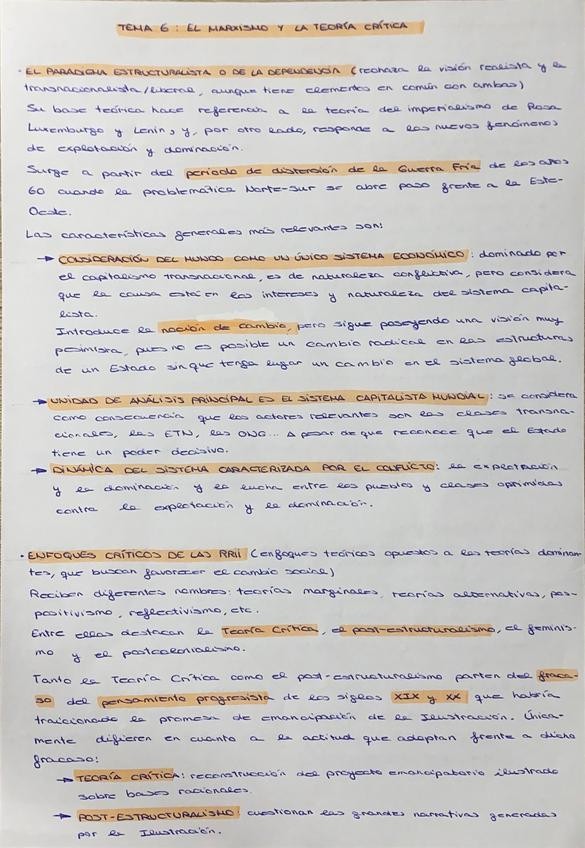 TEMA 6: EL MARXISMO Y LA TEORÍA CRÍTICA
· EL PARADIGMA ESTRUCTURALISTA O DE LA DEPENDENCIA (rechaza la visión realista y la
transnacionalista/liberal, aunque tiene elementos en común con ambas)
Su base teórica hace referencia a la teoría del imperialismo de Rosa
Luxemburgo y Lenin, y, por otro lado, responde a los nuevos fenómenos
de explotación y dominación.
Surge a partir del periodo de distensión de la Guerra Fría de los años
60 cuando la problemática Norte-Sur se abre paso frente a la Este-
Oeste.
Las características generales más relevantes son:
→ CONSIDERACIÓN DEL MUNDO COMO UN ÚNICO SISTEMA ECONÓMICO: dominado por
el capitalismo transnacional, es de naturaleza conflictiva, pero considera
que la causa está en los intereses y naturaleza del sistema capita-
lista.
Introduce la noción de cambio, pero sigue poseyendo una visión muy
pesimista, pues no es posible un cambio radical en las estructuras
de un Estado sin que tenga lugar un cambio en el sistema global.
→ UNIDAD DE ANÁLISIS PRINCIPAL ES EL SISTEMA CAPITALISTA MUNDIAL: se considera
como consecuencia que los actores relevantes son las clases transna-
cionales, las ETN, las ONG... A pesar de que reconoce que el Estado
tiene un poder decisivo.
→ DINÁMICA DEL SISTEMA CARACTERIZADA POR EL CONFLICTO: la explotación
y la dominación y la lucha entre los pueblos y clases oprimidas
contra la explotación y la dominación.
· ENFOQUES CRÍTICOS DE LAS RRII (enfoques teóricos opuestos a las teorías dominan-
tes, que buscan favorecer el cambio social)
Reciben diferentes nombres: teorías marginales, teorías alternativas, pos-
positivismo, reflectivismo, etc.
Entre ellas destacan la Teoría Crítica, el post-estructuralismo, el feminis-
mo y el postcolonialismo.
Tanto la Teoría Crítica como el post-estructuralismo parten del fraca-
so del pensamiento progresista de los siglos XIX y XX que habría
traicionado la promesa de emancipación de la Ilustración. Única-
mente difieren en cuanto a la actitud que adoptan frente a dicho
fracaso:
→ TEORÍA CRÍTICA: reconstrucción del proyecto emancipatorio ilustrado
sobre bases racionales.
→ POST-ESTRUCTURALISMO: cuestionan las grandes narrativas generadas
por la Ilustración.